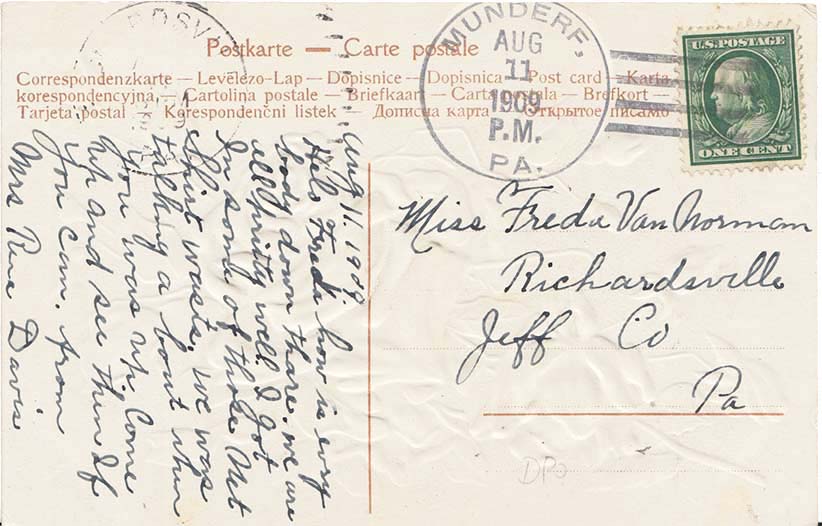 Postkarte — Carte postale
Correspondenzkarte — Levélezo-Lap — Dopisnice — Dopisnica — Post card — Karta
korespondencyjna — Cartolina postale — Briefkaart — Carta postala — Brefkort —
Tarjeta postal — Korespondenční listek — Дописна карта — Открытое письмо
MUNDERF,
AUG
11
1909
P.M.
PA.
U.S. POSTAGE
ONE CENT
Aug 11. 1909.
Helo Freda how is evry
body down thare. we are
all pritty well. I got
In some of those Net
Shirt wasts. we was
talking a bout when
you was up. Come
up and see them If
you can. from
Mrs Rue Davis
Miss Freda Van Norman
Richardsville
Jeff Co
Pa
DPO